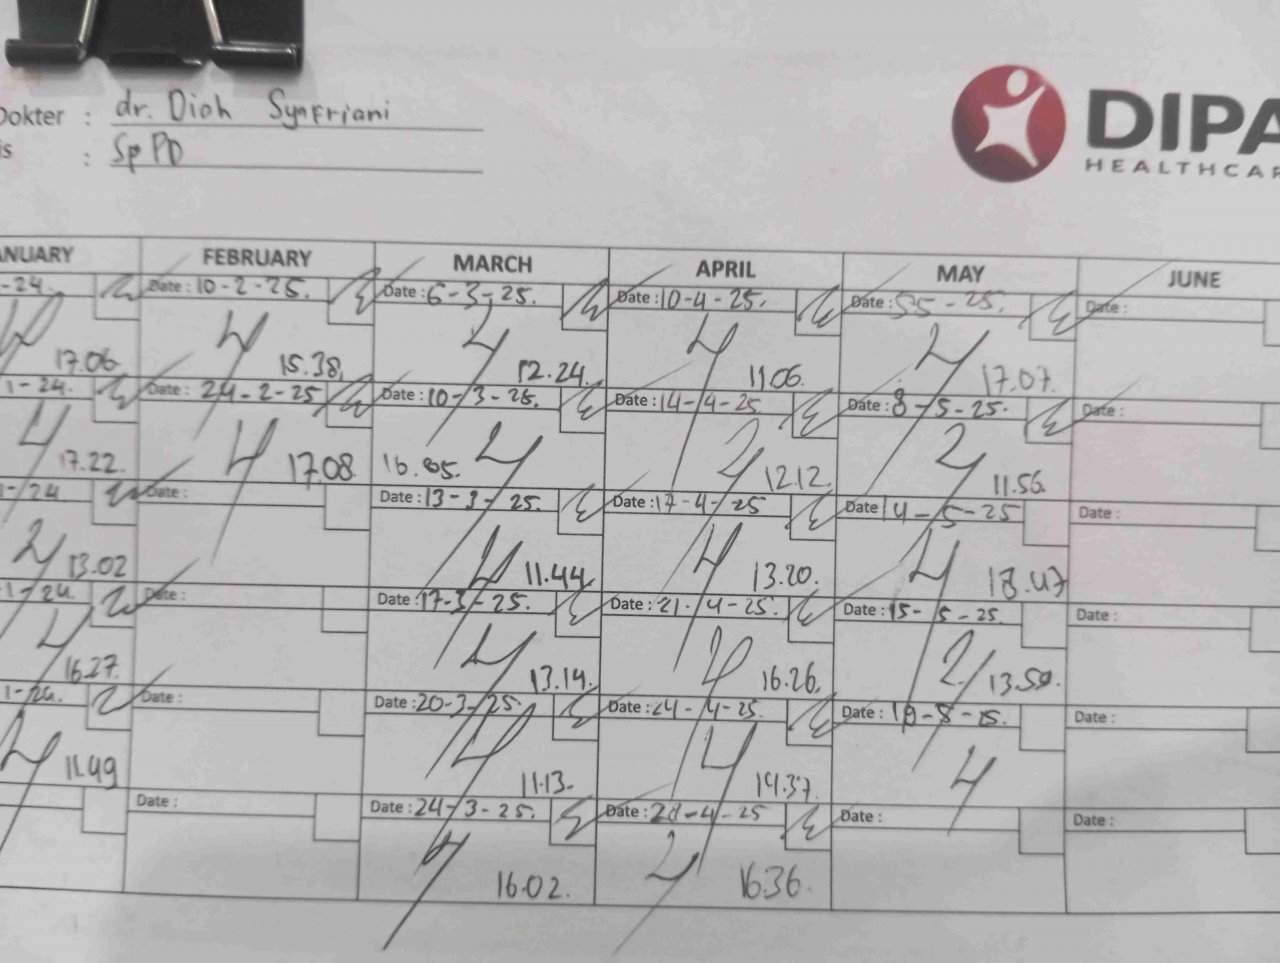 Dokter : dr. Diah Synfriani
is : Sp PD
DIPA
HEALTHCAR
ANUARY FEBRUARY MARCH APRIL MAY JUNE
-24. Date : 10-2-25. Date : 6-3-25. Date : 10-4-25. Date : 55-25. Date :
17.06 15.38. 12.24. 11.06. 17.07.
1-24. Date : 24-2-25 Date : 10-3-25. Date : 14-4-25 Date : 8-5-25. Date :
17.22. 17.08 16.05. 12.12. 11.56.
1-24 Date : Date : 13-3-25. Date : 17-4-25 Date 14-5-25 Date :
13.02 11.44 13.20. 18.47
1-24. Date : Date : 17-3-25. Date : 21-4-25. Date : 15-5-25. Date :
16.27. 13.14. 16.26. 13.50.
1-24. Date : Date : 20-3-25. Date : 24-4-25. Date : Date :
11.49 11.13. 14.37.
Date : Date : 24-3-25. Date : 28-4-25 Date : Date :
16.02. 16.36.